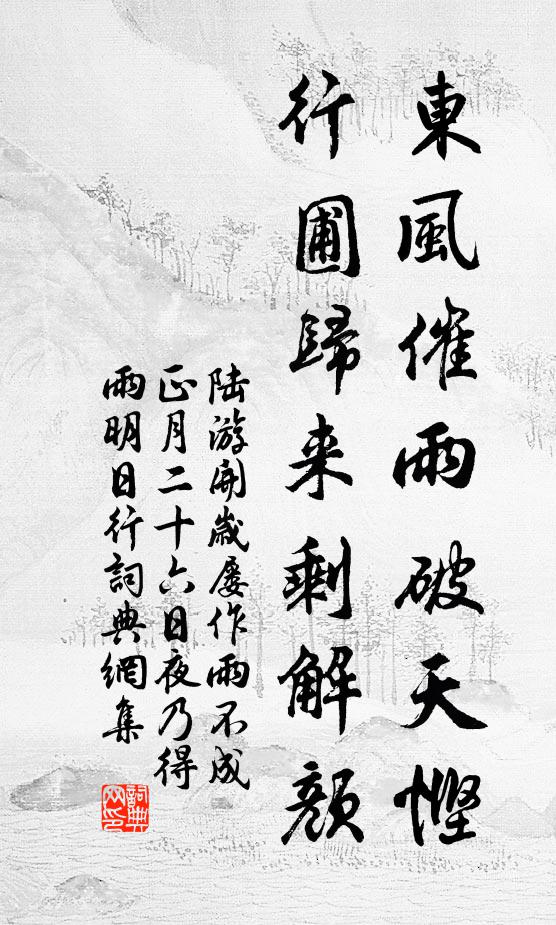 東風催雨破天慳
行圃歸来剩解顏
陆游開歲屡作雨不成
正月二十六日夜乃得
雨明日行詞典網集
詞典网印